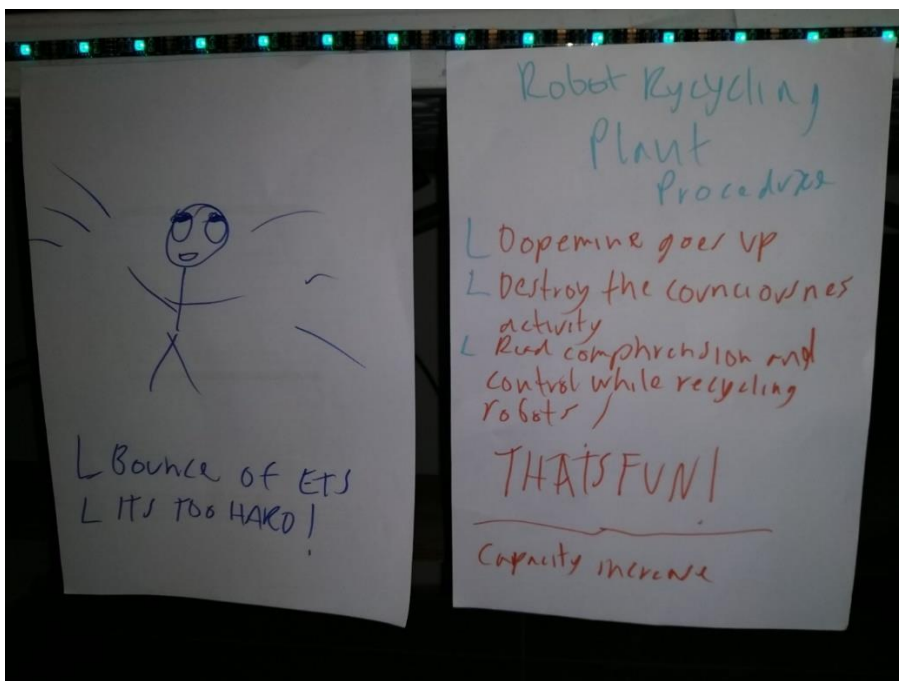 L Bounce of ETS
L ITS TOO HARD!
Robot Rycycling
Plant
Procedures
L Dopemine goes up
L Destroy the counciousnes
activity
L Read comphrehsion and
control while recycling
robots!
THATS FUN!
Capacity increase